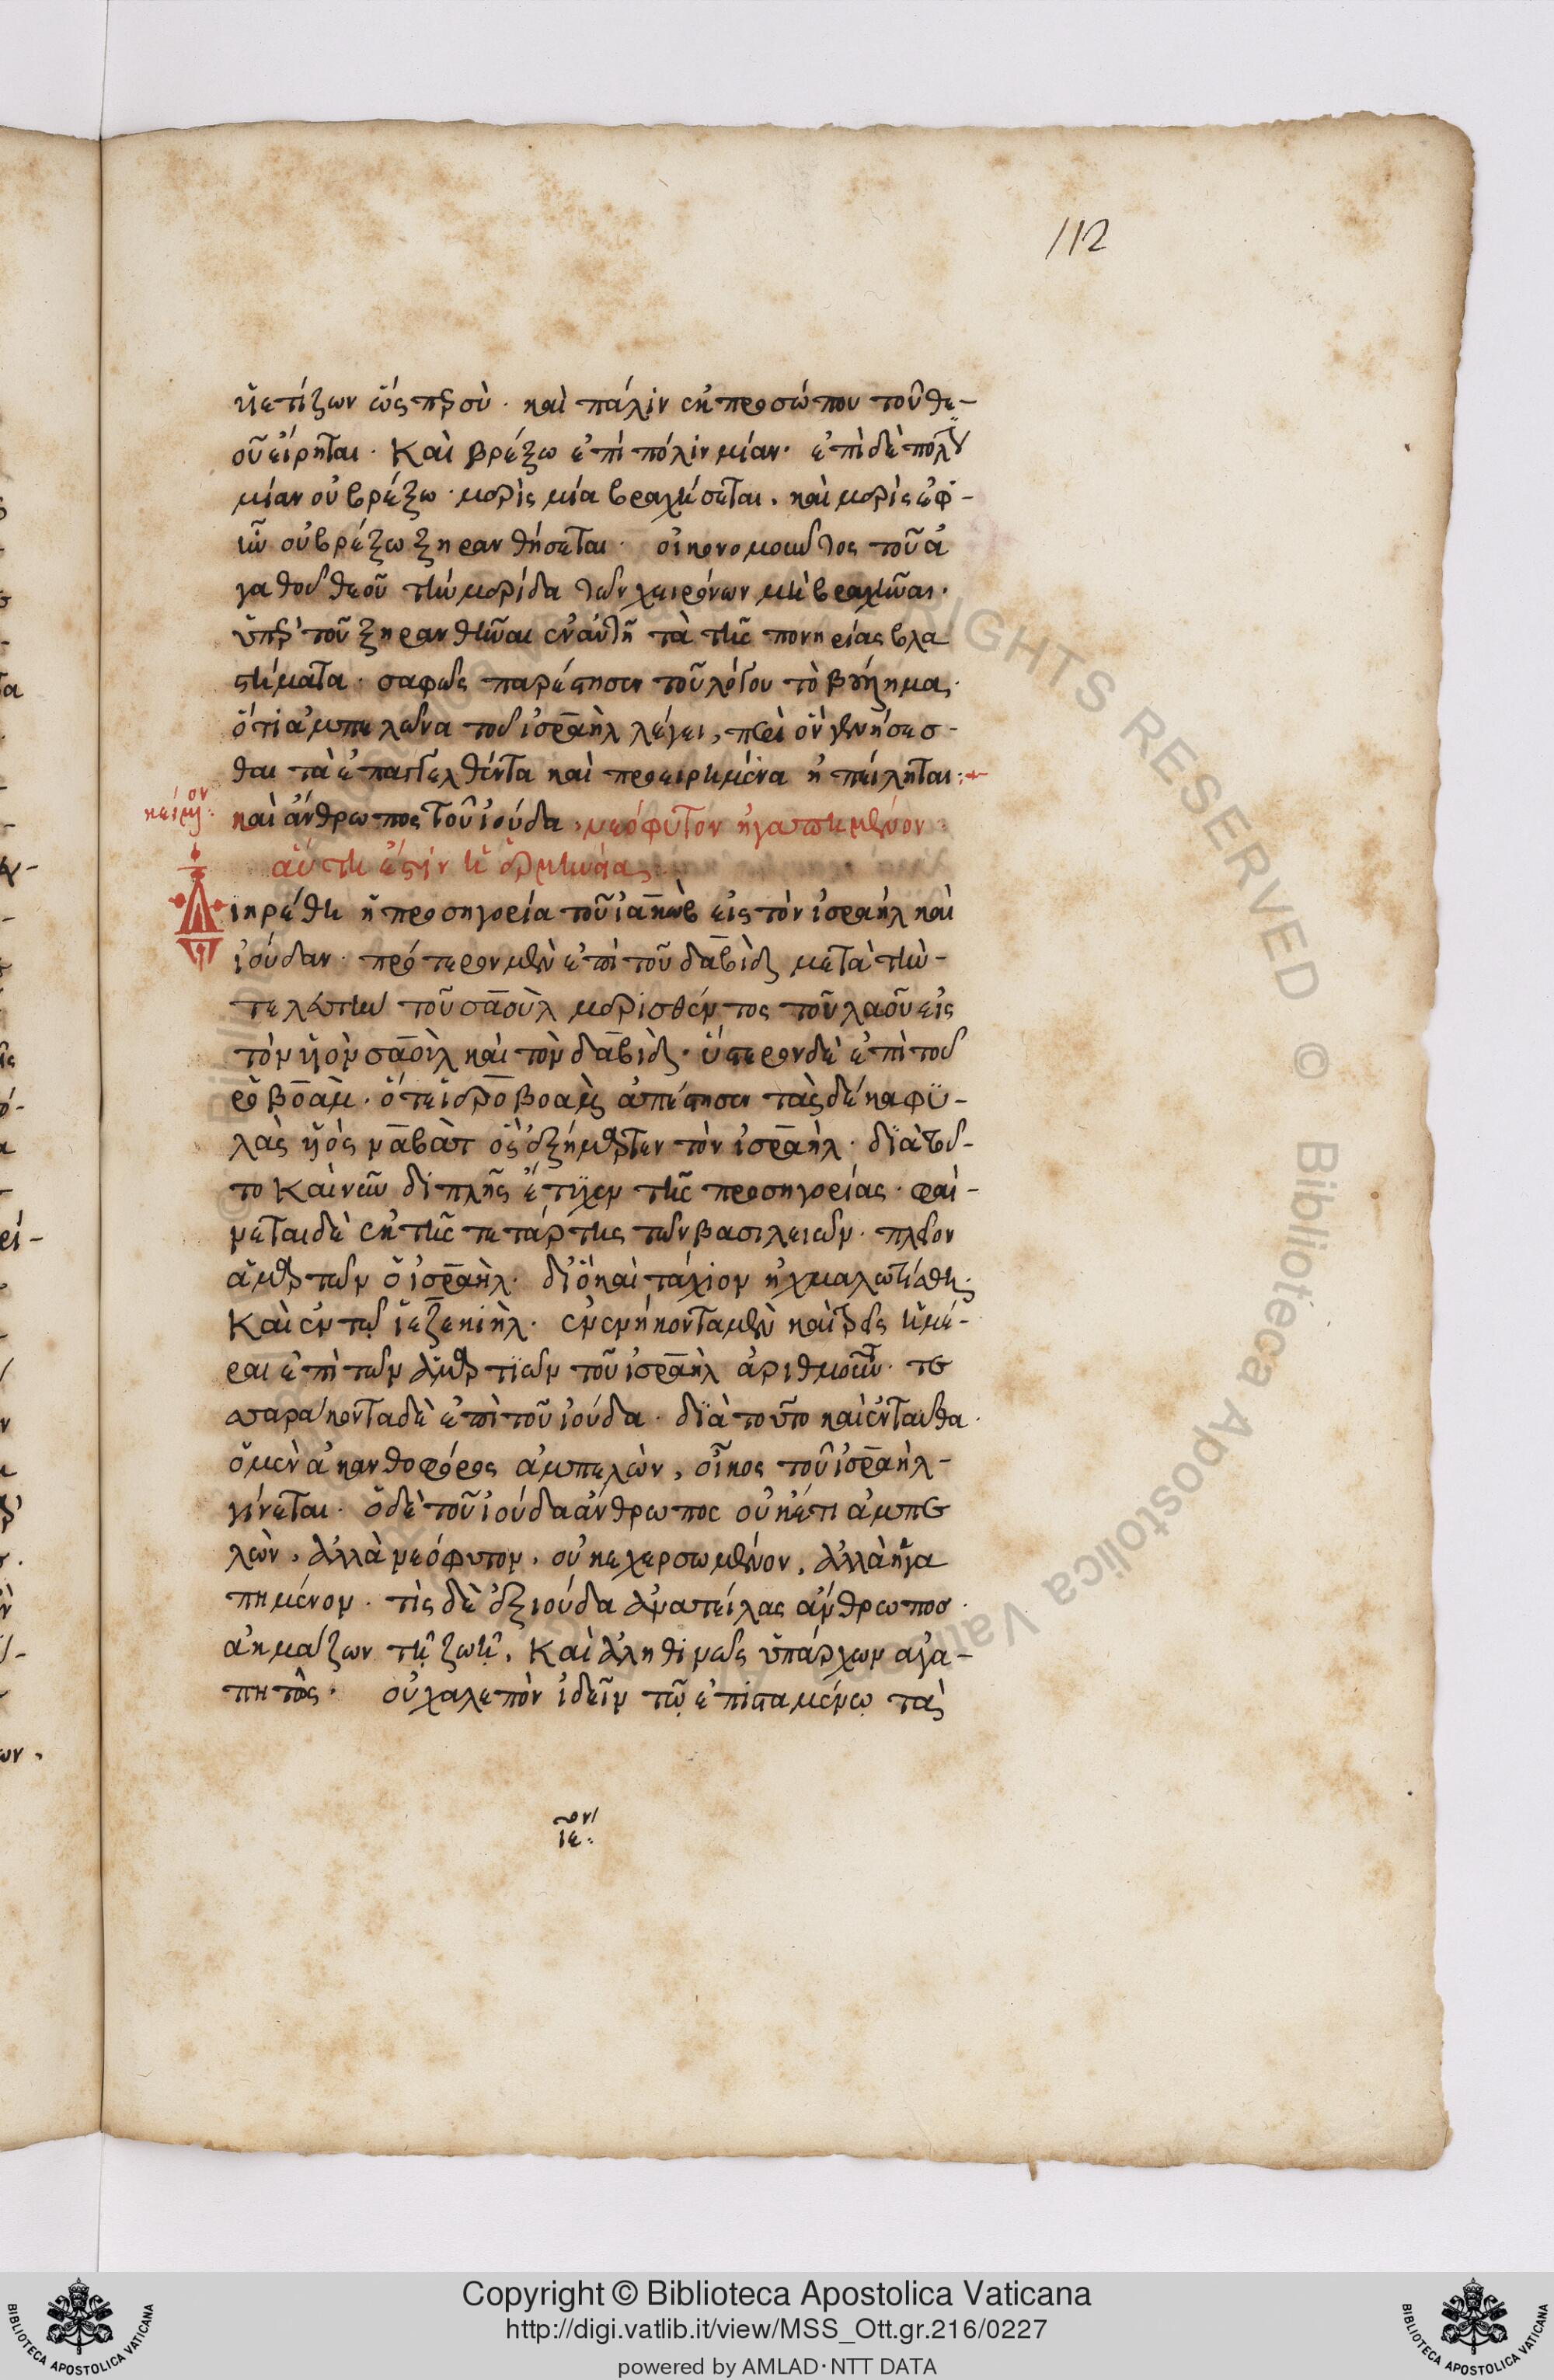 112
ὑετίζων ὥσπερ σὺ · καὶ πάλιν ἐκ προσώπου τοῦ θε-
οῦ εἴρηται · Καὶ βρέξω ἐπὶ πόλιν μίαν · ἐπὶ δὲ πόλιν
μίαν οὐ βρέξω · μερὶς μία βραχήσεται · καὶ μερὶς ἐφ'-
ἣν οὐ βρέξω ξηρανθήσεται · οἰκονομοῦντος τοῦ ἀ
γαθοῦ θεοῦ τὴν μερίδα τῶν χειρόνων μὴ βραχῆναι ·
ὑπὲρ τοῦ ξηρανθῆναι ἐν αὐτῇ τὰ τῆς πονηρίας βλα
στήματα · σαφῶς παρέστησεν τοῦ λόγου τὸ βούλημα ·
ὅτι ἀμπελῶνα τοῦ ἰσραὴλ λέγει, περὶ ὃν γενήσεσ-
θαι τὰ ἐπαγγελθέντα καὶ προειρημένα ἠπείληται :
κείμενον :
καὶ ἄνθρωπος τοῦ ἰούδα, νεόφυτον ἠγαπημένον :
αὕτη ἐστὶν ἡ ἑρμηνεία :
Διηρέθη ἡ προσηγορία τοῦ ἰακὼβ εἰς τὸν ἰσραὴλ καὶ
ἰούδαν · πρότερον μὲν ἐπὶ τοῦ δαβὶδ μετὰ τὴν-
τελευτὴν τοῦ σαοὺλ μερισθέντος τοῦ λαοῦ εἰς
τὸν υἱὸν σαοὺλ καὶ τὸν δαβὶδ · ὕστερον δὲ ἐπὶ τοῦ
ῥοβοὰμ · ὅτε ἱεροβοὰμ ἀπέστησεν τὰς δέκα φυ-
λὰς υἱὸς ναβὰτ ὃς ἐξήμαρτεν τὸν ἰσραὴλ · διὰ τοῦ-
το Καινῶν διπλῆς ἔτυχεν τῆς προσηγορίας · φαί-
νεται δὲ ἐκ τῆς τετάρτης τῶν βασιλειῶν · πλέον
ἁμαρτῶν ὁ ἰσραὴλ · διὸ καὶ τάχιον ἠχμαλωτίσθη ·
Καὶ ἐν τῷ ἰεζεκιὴλ · ἐνενήκοντα μὲν καὶ τρεῖς ἡμέ-
ραι ἐπὶ τῶν ἁμαρτιῶν τοῦ ἰσραὴλ ἀριθμοῦνται · τε
σσαράκοντα δὲ ἐπὶ τοῦ ἰούδα · διὰ τοῦτο καὶ ἐνταῦθα ·
ὁ μὲν ἀκανθοφόρος ἀμπελὼν, οἶκος τοῦ ἰσραὴλ-
γίνεται · ὁ δὲ τοῦ ἰούδα ἄνθρωπος οὐκέτι ἀμπε
λὼν, ἀλλὰ νεόφυτον, οὐ κεχερσωμένον, ἀλλὰ ἠγα
πημένον · τίς δὲ ἐξ ἰούδα ἀνατείλας ἄνθρωπος ·
ἀκμάζων τῇ ζωῇ, Καὶ ἀληθινῶς ὑπάρχων ἀγα-
πητός · οὐ χαλεπὸν ἰδεῖν τῷ ἐπισταμένῳ τὰς
ιε :
Copyright © Biblioteca Apostolica Vaticana
http://digi.vatlib.it/view/MSS_Ott.gr.216/0227
powered by AMLAD·NTT DATA